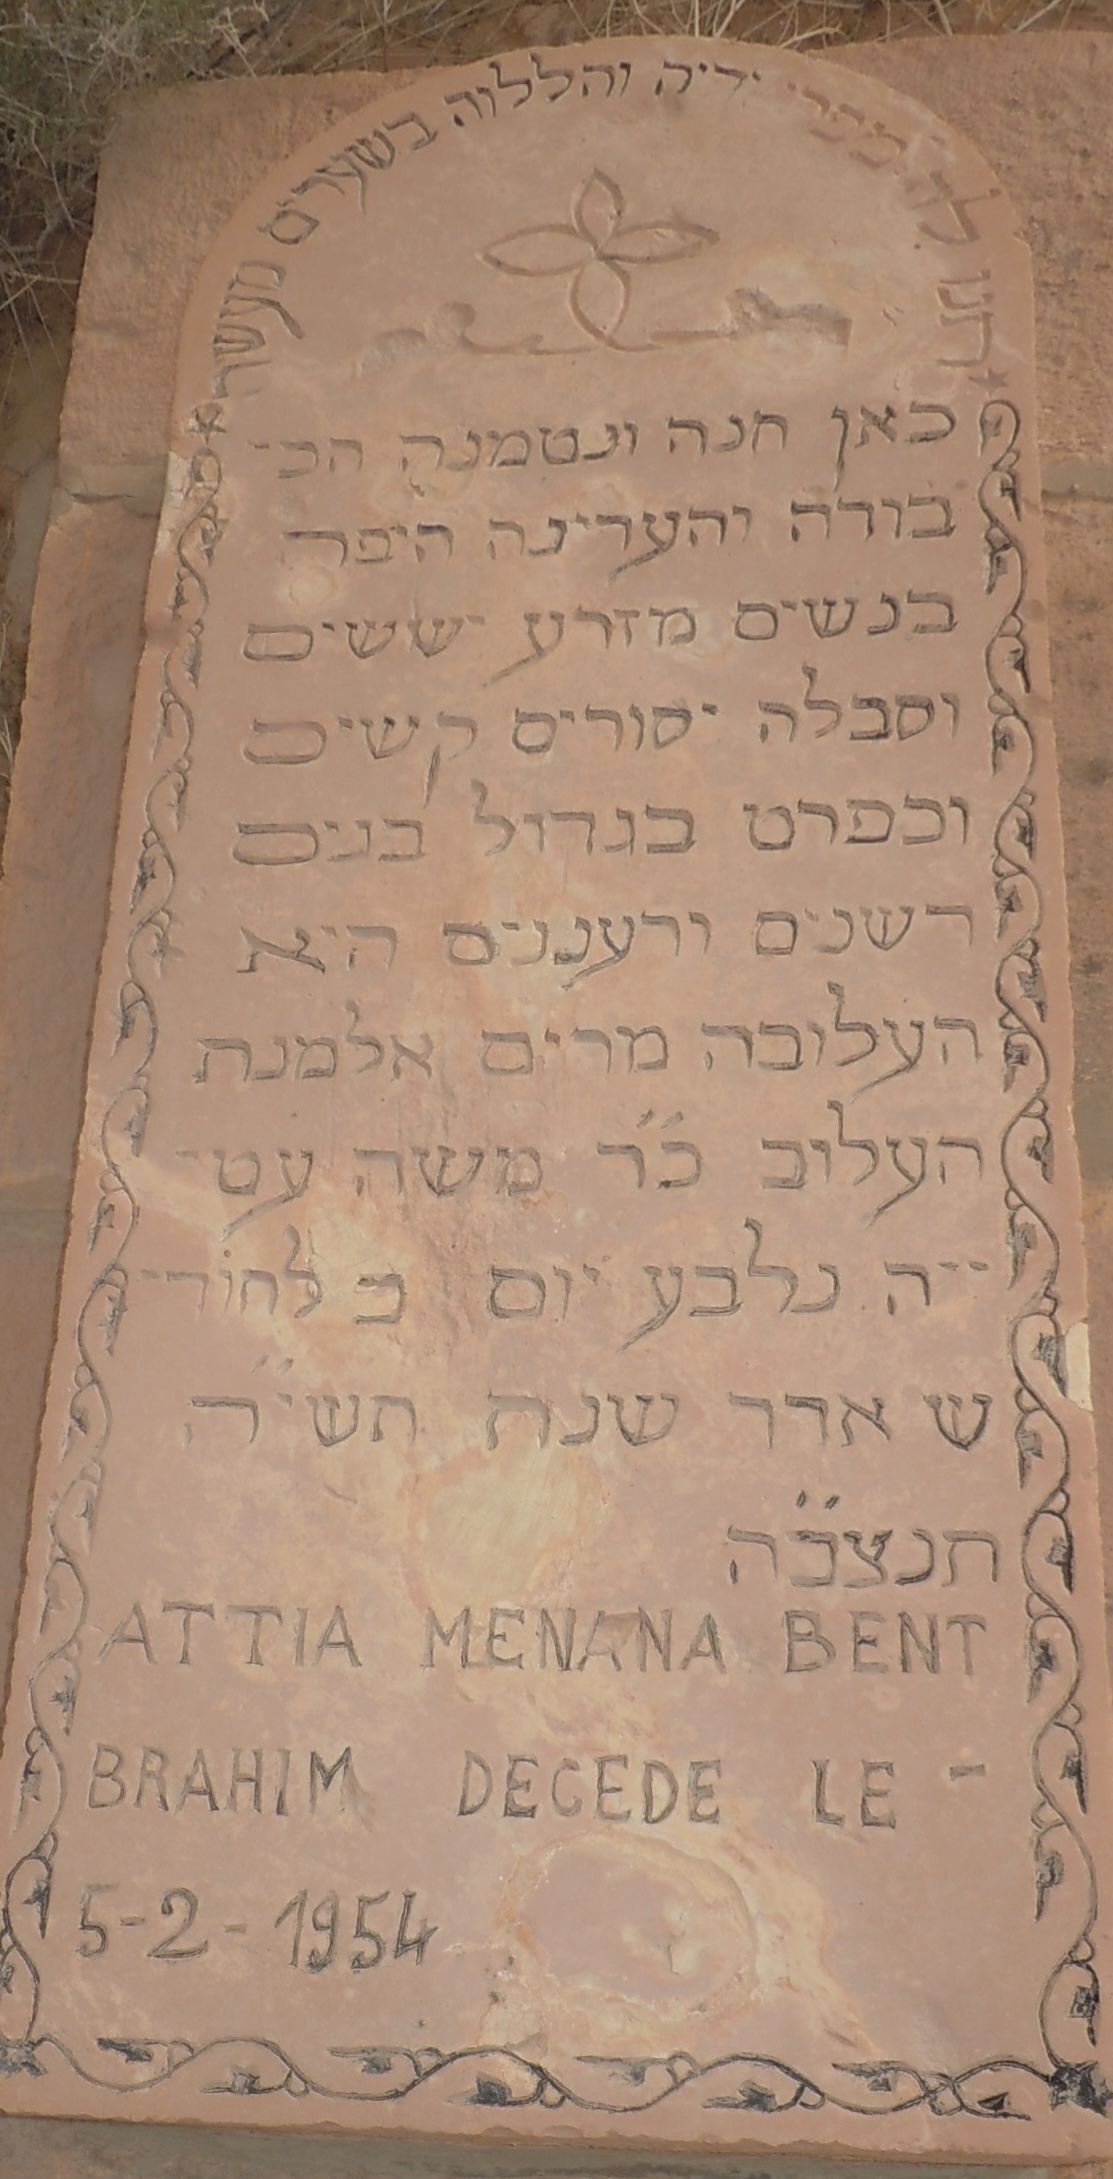 תנו לה מפרי ידיה ויהללוה בשערים מעשיה
כאן חנה ונטמנה הכ-
בודה והעדינה היפה
בנשים מזרע ישישים
וסבלה יסורים קשים
ובפרט בגדול בנים
דשנים ורעננים היא
העלובה מרים אלמנת
העלוב כ"ר משה עט-
ייה נלבע יום ב לחוד-
ש אדר שנת תשי"ה
תנצב"ה
ATTIA MENANA BENT
BRAHIM DECEDE LE -
5-2-1954